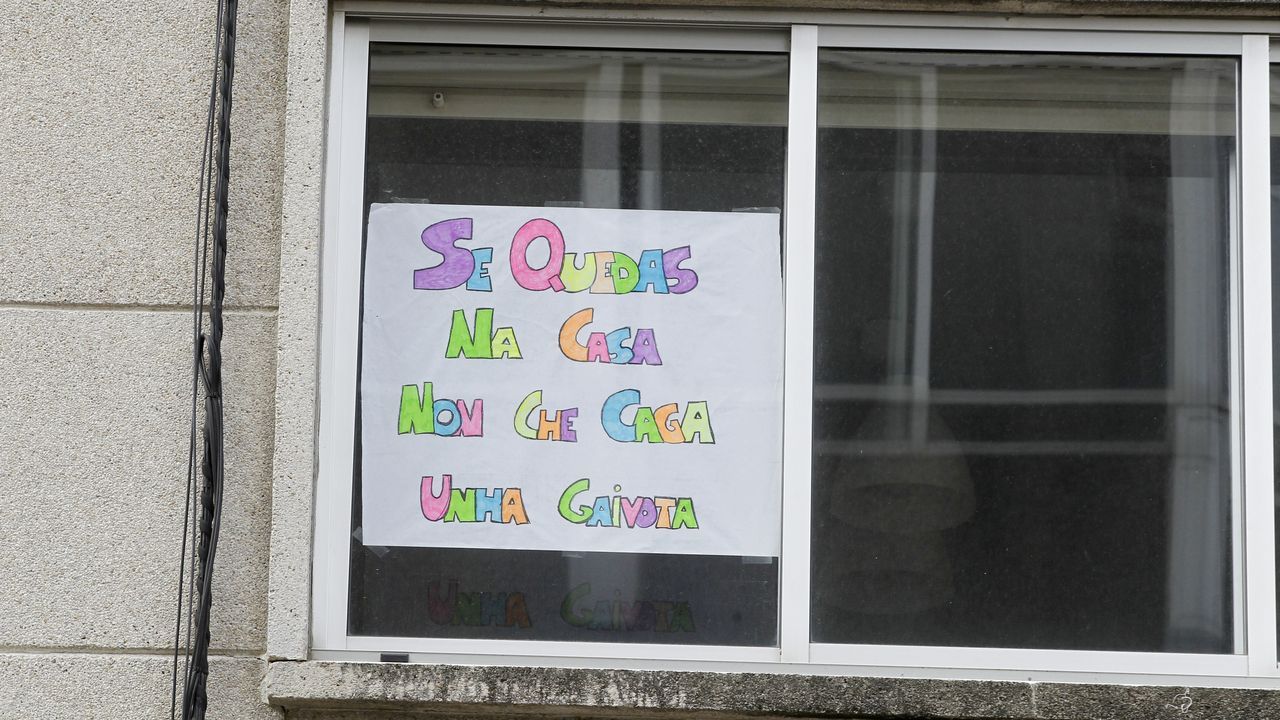 Se Quedas
Na Casa
Non Che Caga
Unha Gaivota
Unha Gaivota